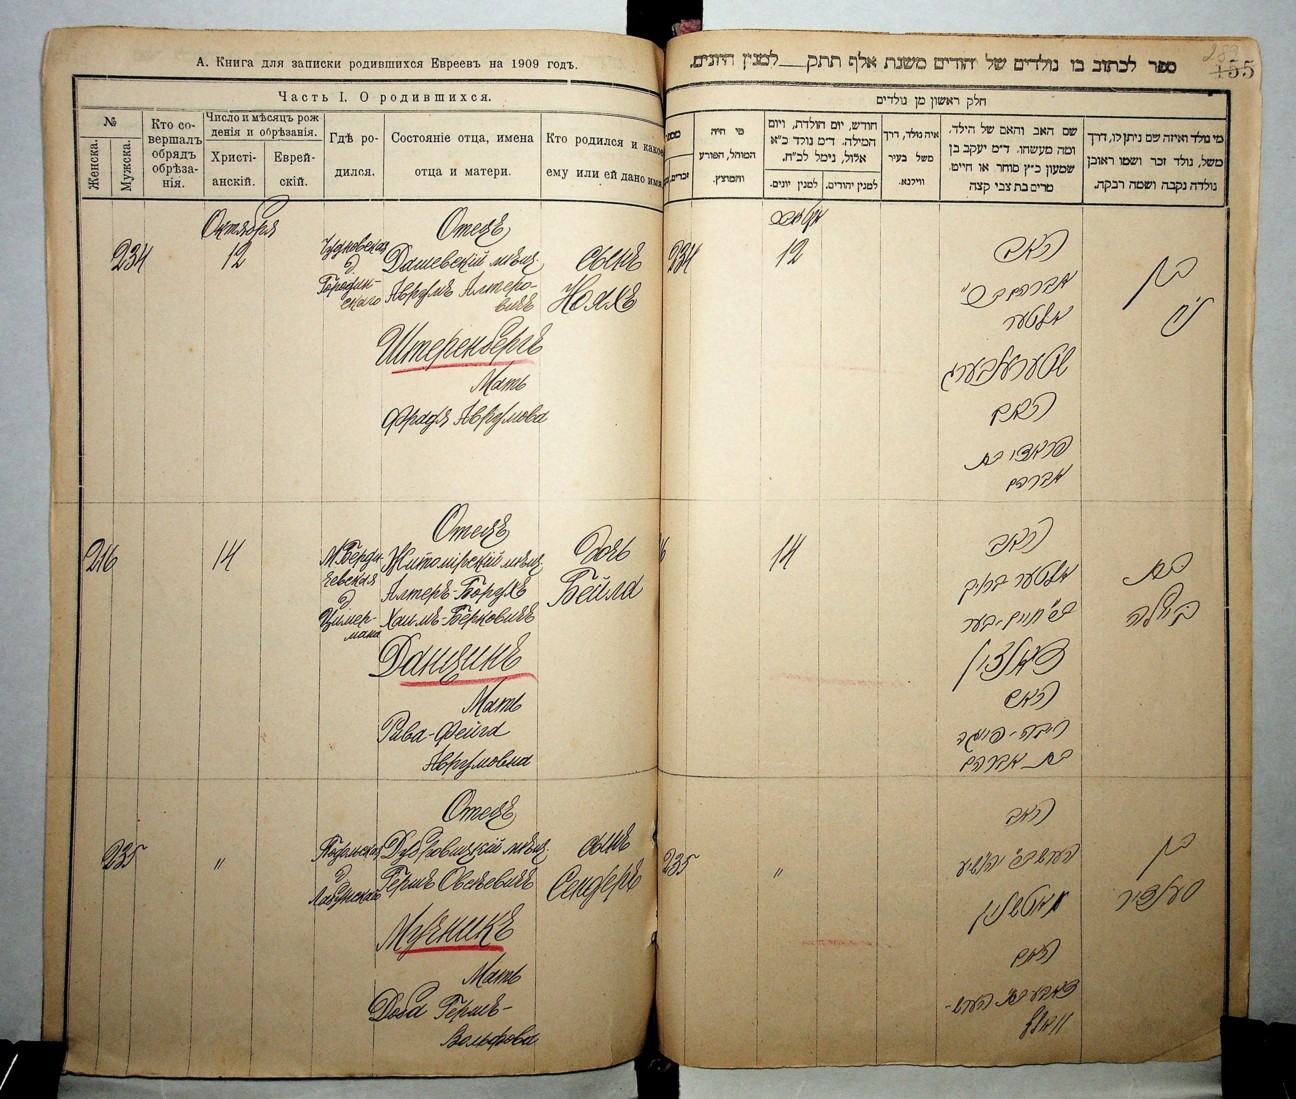 А. Книга для записки родившихся Евреевъ на 1909 годъ.
Часть I. О родившихся.
№
Женска.
Мужска.
Кто со-
вершалъ
обрядъ
обрѣза-
нія.
Число и мѣсяцъ рож
денія и обрѣзанія.
Христі-
анскій.
Еврей-
скій.
Гдѣ ро-
дился.
Состояніе отца, имена
отца и матери.
Кто родился и какое
ему или ей дано имя
Октября
234
12
Чудновская
д.
Городин-
скаго
Отецъ
Дашевскій мѣщ.
Аврумъ Алтеро-
вичъ
Штеренбергъ
Мать
Фрадя Аврумова
сынъ
Нояхъ
216
14
М. Берди
чевская
д
Цимер-
мана
Отецъ
Житомірскій мѣщ.
Алтеръ-Борухъ
Хаимъ-Берковичъ
Данцинъ
Мать
Рива-Фейга
Аврумовна
дочь
Бейла
235
"
Подольская
д
Отецъ
Дубровицкій мѣщ.
Гершъ Овсѣевичъ
Мучникъ
Мать
Доба Гершъ-
Вольфова
сынъ
Сендеръ
ספר לכתוב בו נולדים של יהודים משנת אלף תתק___למנין היונים.
155
חלק ראשון מן נולדים
מי היה
המוהל, הפורע
והמוצץ.
חודש, יום הולדת, ויום
המילה. ד״מ נולד כ״א
אלול, נימל לכ״ח.
למנין יהודים.
למנין יונים.
איה נולד, דרך
משל בעיר
ווילנא.
שם האב והאם של הילד,
ומה מעשהו. ד״מ יעקב בן
שמעון כ״ץ סוחר או חייט
מרים בת צבי קצה
מי נולד ואיזה שם ניתן לו, דרך
משל, נולד זכר ושמו ראובן
נולדה נקבה ושמה רבקה.
234
12
האב
אברהם ב״ר
אלטער
שטערענבערג
האם
פראדי בת
אברהם
בן
נח
14
האב
אלטער ברוך
ב״ר חיים-בער
דאנצין
האם
ריבה-פייגה
בת אברהם
בת
ביילה
235
"
האב
הערש ב״ר יהושיע
מוטשניק
האם
דאבע בת הערש-
וואלף
בן
סענדיר